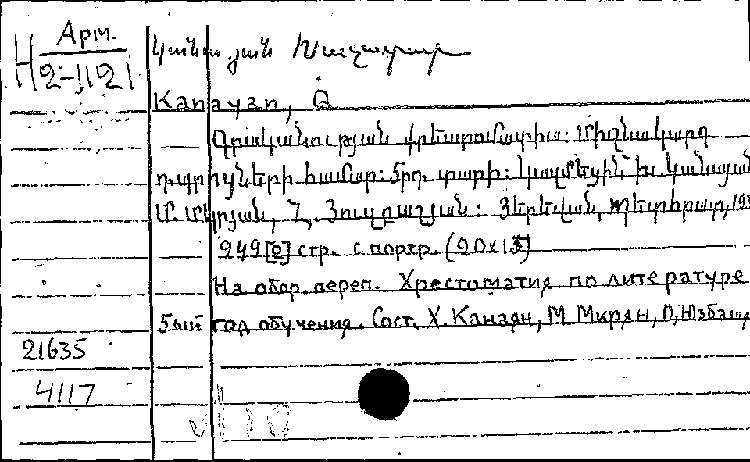 Арм.
H 2-1121
Կանայան Խաչատուր
Kanayan, Q
Գրականության քրեստոմատիա: Միջնակարգ
դպրոցների համար: 5րդ տարի: Կազմեցին՝ Խ. Կանայան
Մ. Մկրյան, Հ. Յուզբաշյան: Յերեվան, Պետհրատ, 193
249 [2] стр. с портр. (20x13)
На обор. переп. Хрестоматия по литературе
5ый год обучения. Сост. Х. Канаян, М. Мкрян, О. Юзбаш
21635
4117